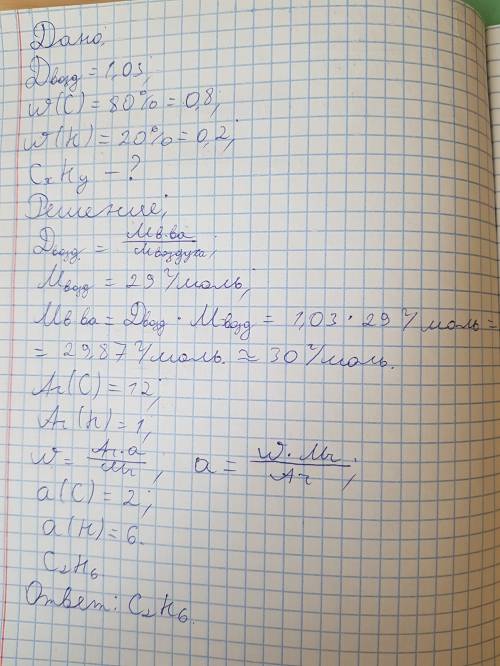 Дано:
Dвозд = 1,03;
w(C) = 80% = 0,8;
w(H) = 20% = 0,2;
CxHy – ?
Решение;
Dвозд. = Mв-ва / Mвоздуха;
Mвозд = 29 г/моль;
Mв-ва = Dвозд · Mвозд = 1,03 · 29 г/моль =
= 29,87 г/моль. ≈ 30 г/моль.
Ar(C) = 12;
Ar(H) = 1;
w = Ar·a / Mr; a = w·Mr / Ar;
a(C) = 2;
a(H) = 6.
C2H6
Ответ: C2H6.